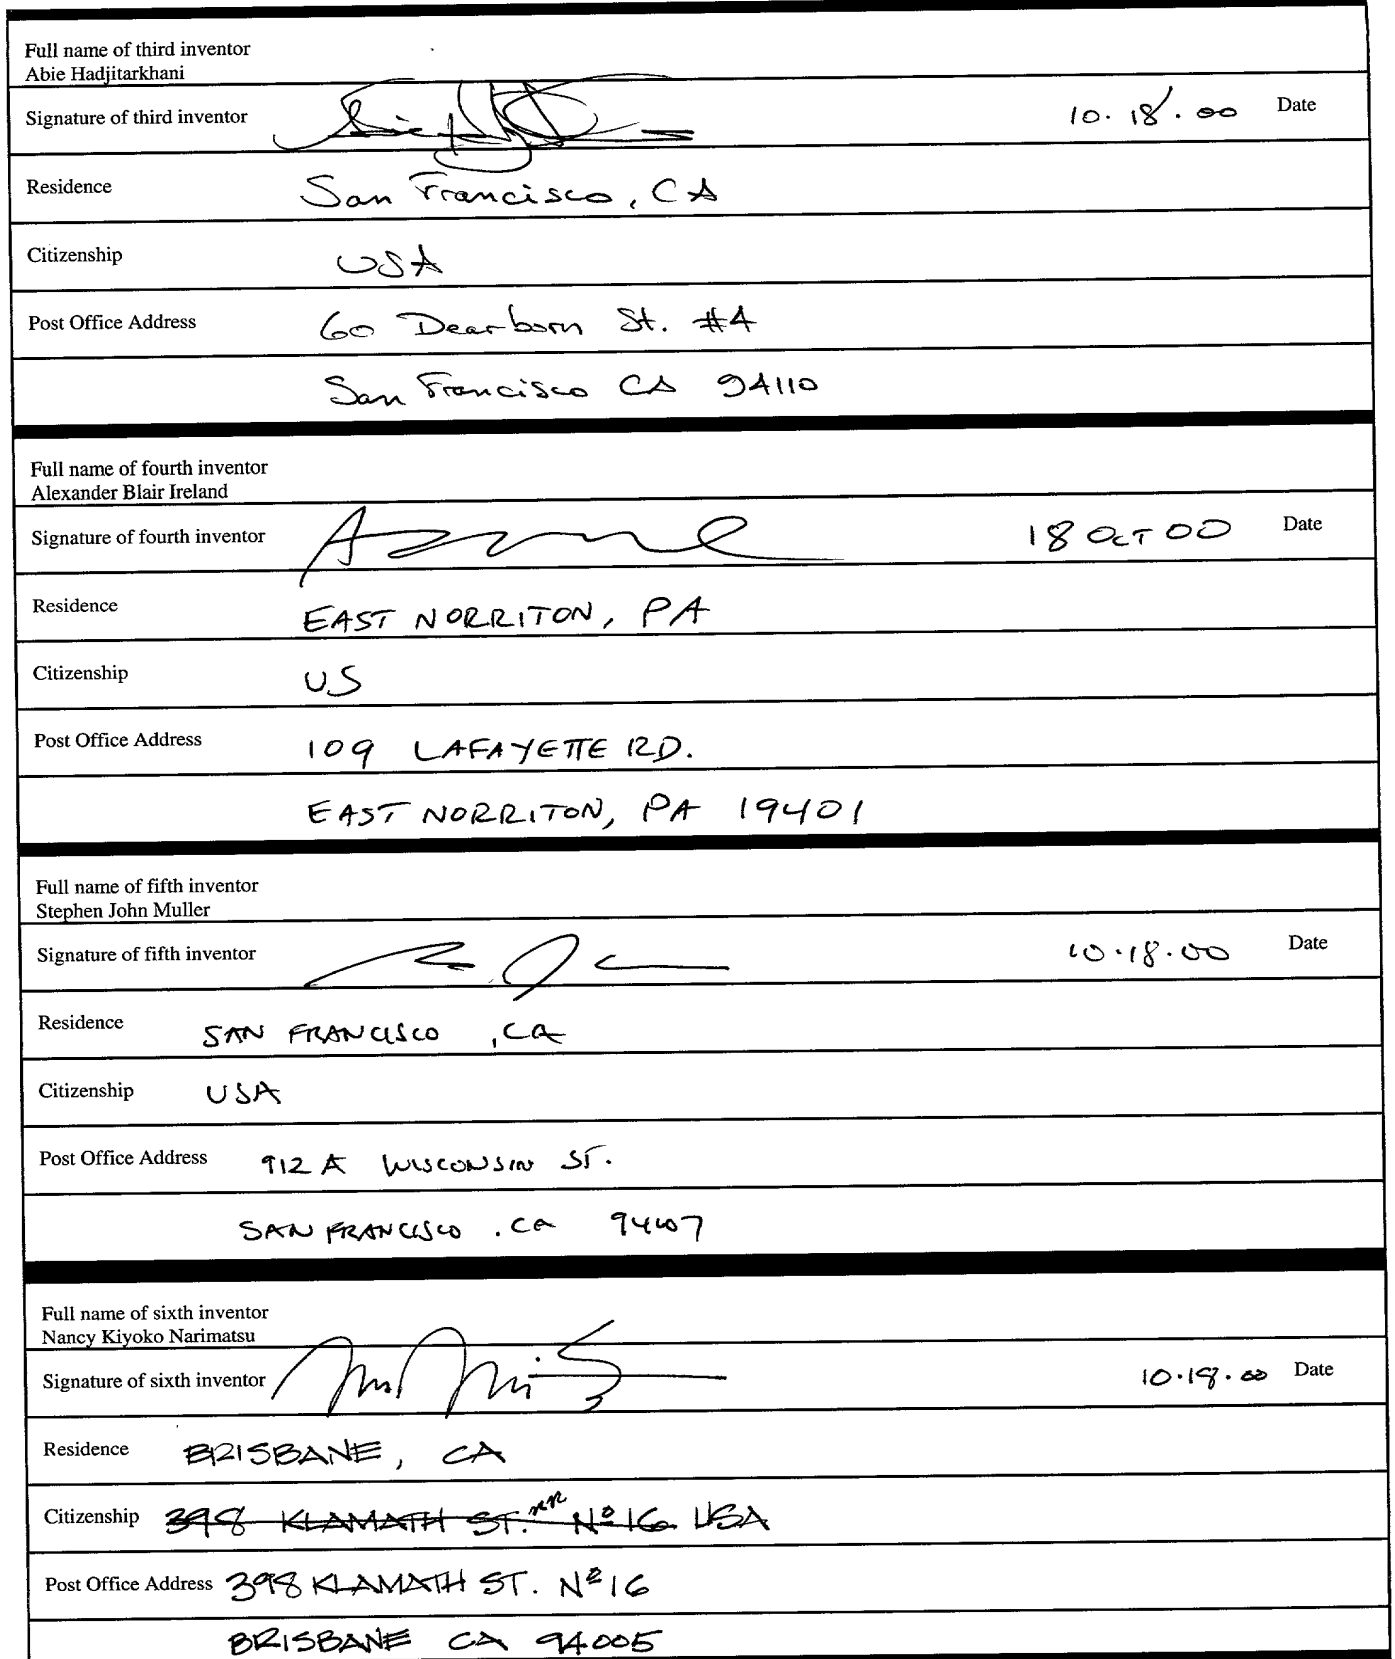 Full name of third inventor
Abie Hadjitarkhani
Signature of third inventor 10.18.00 Date
Residence San Francisco, CA
Citizenship USA
Post Office Address 60 Dearborn St. #4
San Francisco CA 94110
Full name of fourth inventor
Alexander Blair Ireland
Signature of fourth inventor 18 OCT 00 Date
Residence EAST NORRITON, PA
Citizenship US
Post Office Address 109 LAFAYETTE RD.
EAST NORRITON, PA 19401
Full name of fifth inventor
Stephen John Muller
Signature of fifth inventor 10.18.00 Date
Residence SAN FRANCISCO, CA
Citizenship USA
Post Office Address 912 A WISCONSIN ST.
SAN FRANCISCO. CA 94107
Full name of sixth inventor
Nancy Kiyoko Narimatsu
Signature of sixth inventor 10.18.00 Date
Residence BRISBANE, CA
Citizenship 398 KLAMATH ST. Nº16 USA
Post Office Address 398 KLAMATH ST. Nº16
BRISBANE CA 94005